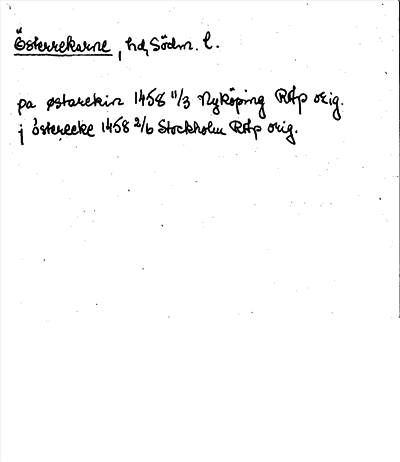 Österrekarne, hd, Södm. l.
pa østarekin 1458 11/3 Nyköping RAp orig.
j østerecke 1458 2/6 Stockholm RAp orig.